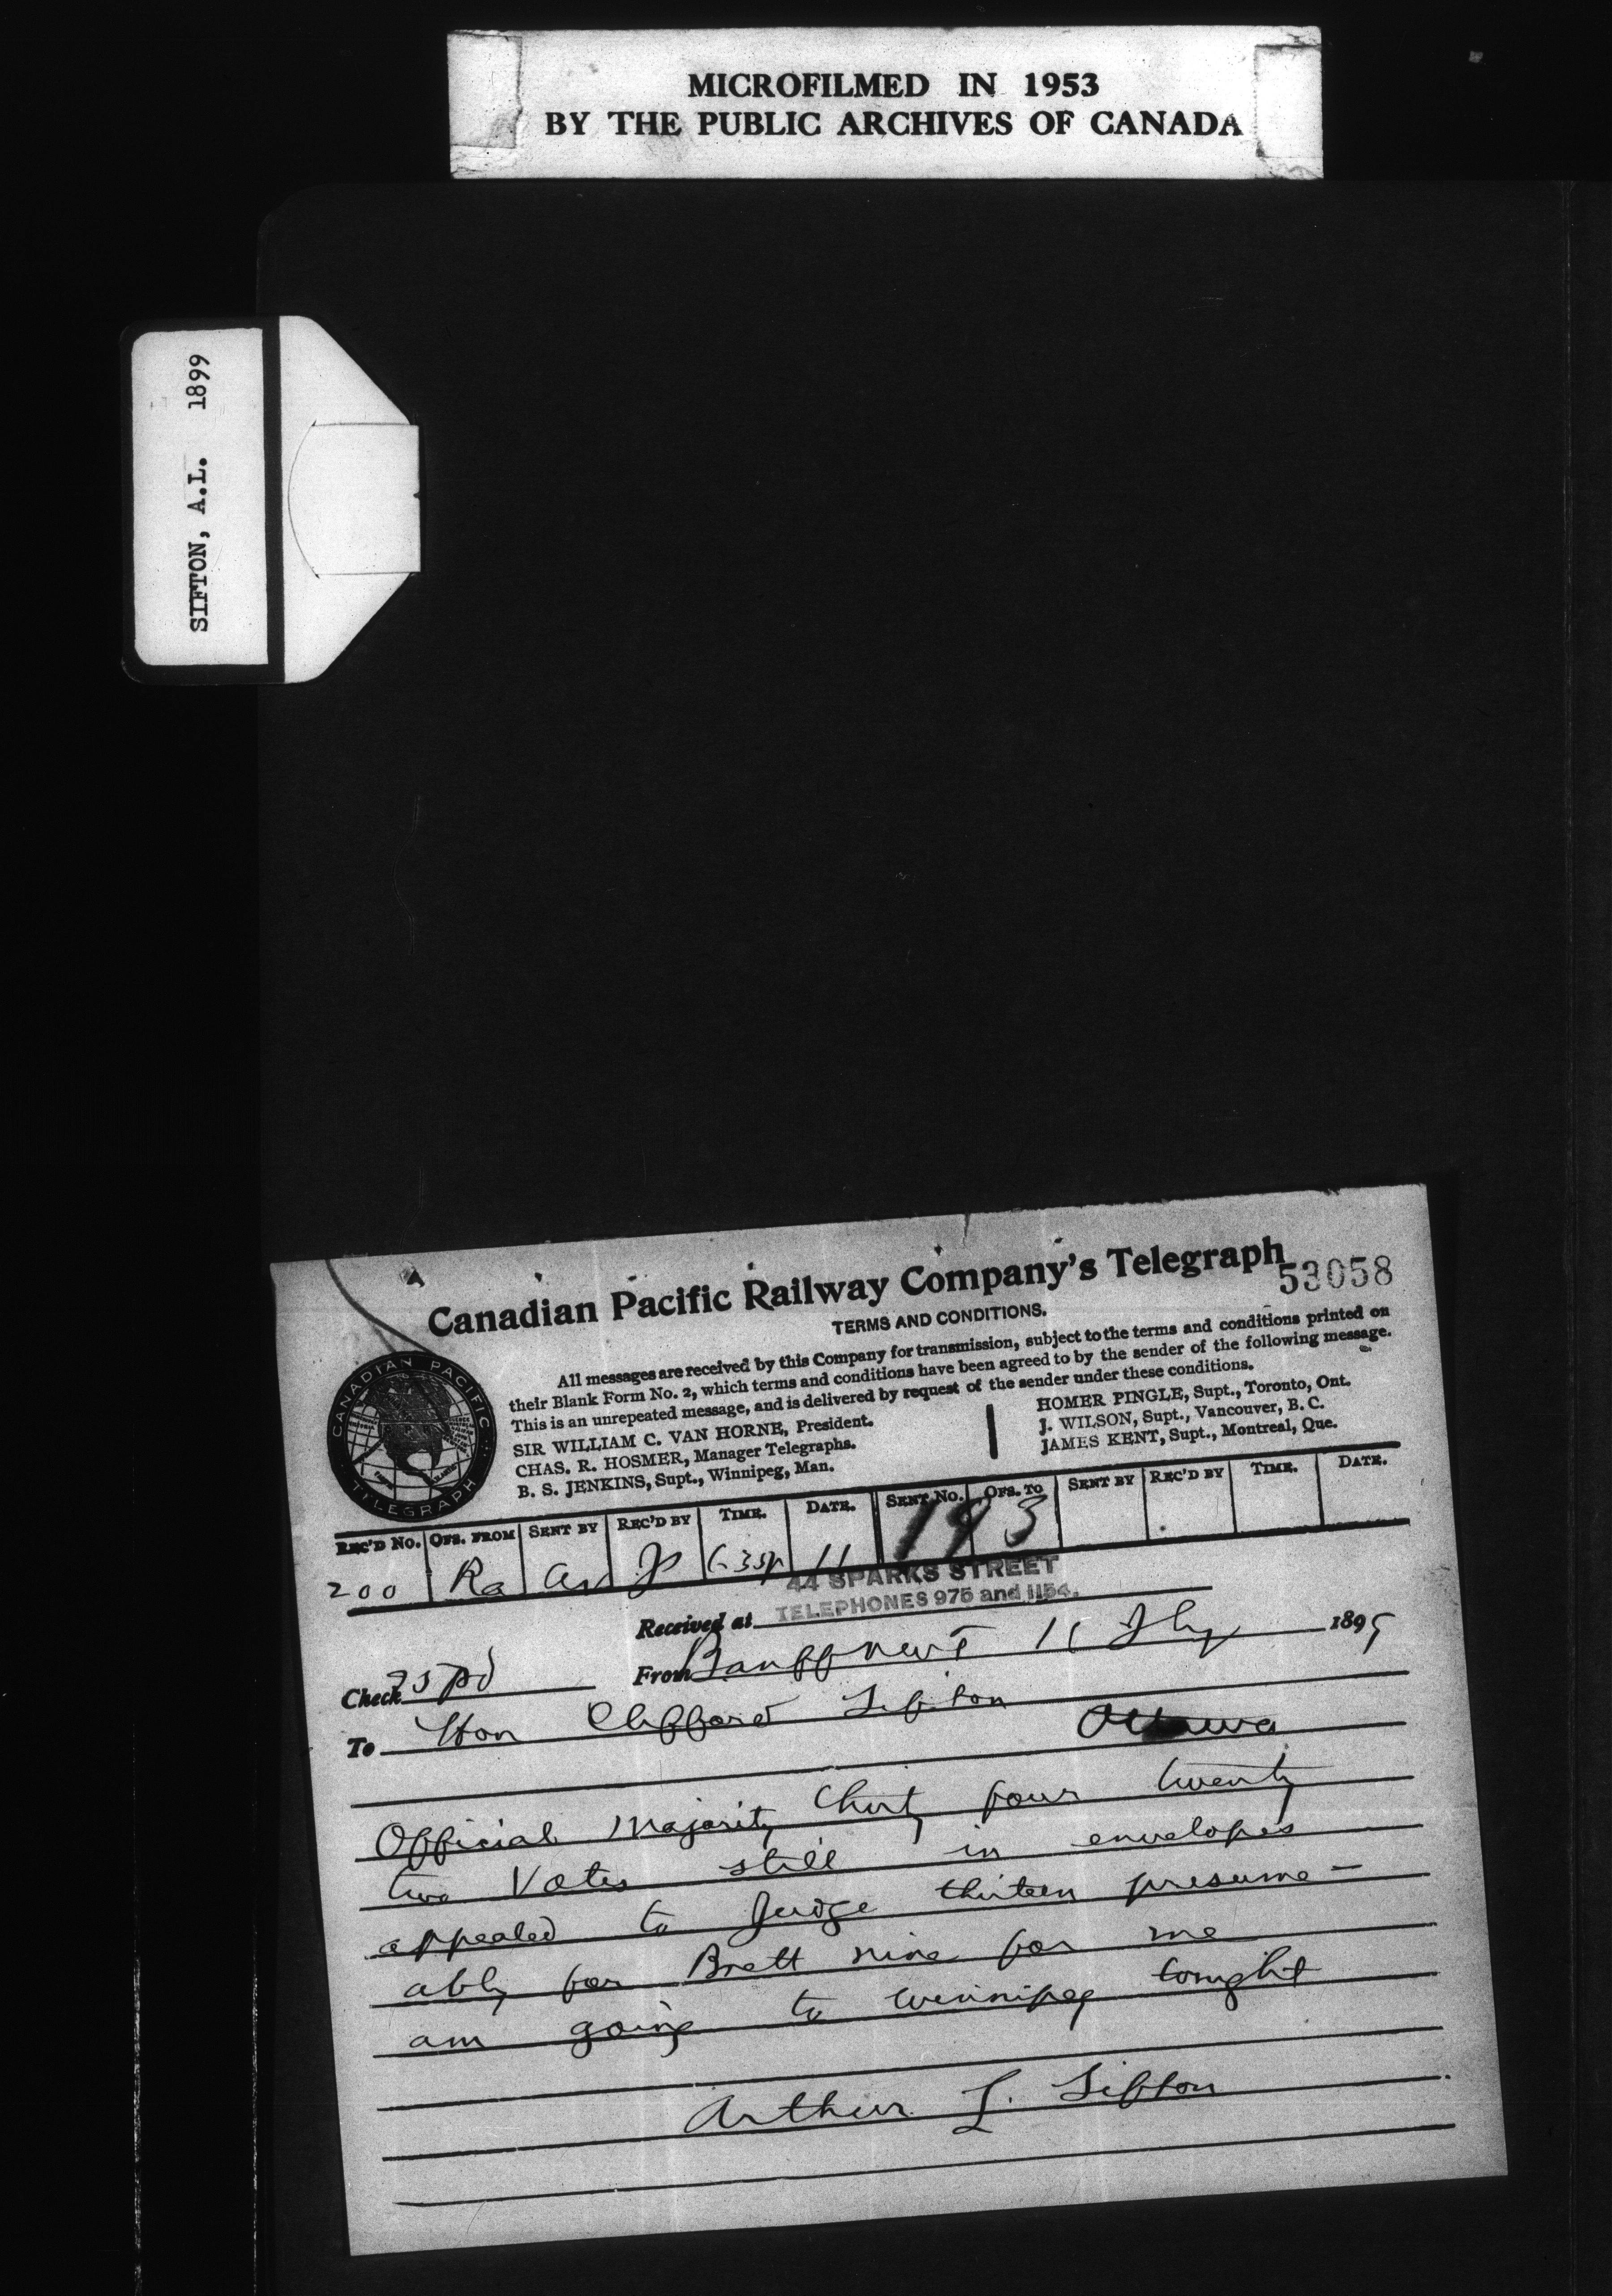 MICROFILMED IN 1953
BY THE PUBLIC ARCHIVES OF CANADA
SIFTON, A.L. 1899
Canadian Pacific Railway Company's Telegraph
53058
TERMS AND CONDITIONS.
All messages are received by this Company for transmission, subject to the terms and conditions printed on
their Blank Form No. 2, which terms and conditions have been agreed to by the sender of the following message.
This is an unrepeated message, and is delivered by request of the sender under these conditions.
SIR WILLIAM C. VAN HORNE, President.
CHAS. R. HOSMER, Manager Telegraphs.
B. S. JENKINS, Supt., Winnipeg, Man.
HOMER PINGLE, Supt., Toronto, Ont.
J. WILSON, Supt., Vancouver, B. C.
JAMES KENT, Supt., Montreal, Que.
CANADIAN PACIFIC
TELEGRAPH
REC'D No. OFS. FROM SENT BY REC'D BY TIME. DATE. SENT No. OFS. TO SENT BY REC'D BY TIME. DATE.
200 Ra 11 193
44 SPARKS STREET
Received at TELEPHONES 975 and 1154.
Check 25 pd From Banff NWT 11 1899
To Hon Clifford Sifton
Ottawa
Official Majority thirty four twenty
two Votes still in envelopes
appealed to Judge thirteen presume-
ably for Brett nine for me
am going to Winnipeg tonight
Arthur L. Sifton